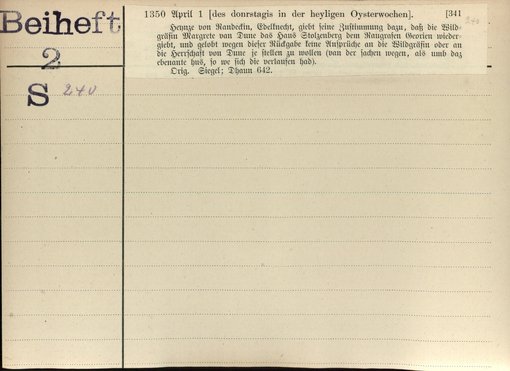 Beiheft
2
S 240
1350 April 1 [des donrstagis in der heyligen Oysterwochen]. [341
240
Heynze von Randeckin, Edelknecht, giebt seine Zustimmung dazu, daß die Wild-
gräfin Margrete van Dune das Haus Stolzenberg dem Raugrafen Georien wieder-
giebt, und gelobt wegen dieser Rückgabe keine Ansprüche an die Wildgräfin oder an
die Herrschaft von Dune je stellen zu wollen (van der sachen wegen, als umb daz
ebenante hus, so we sich die verlaufen had).
Orig. Siegel; Dhaun 642.